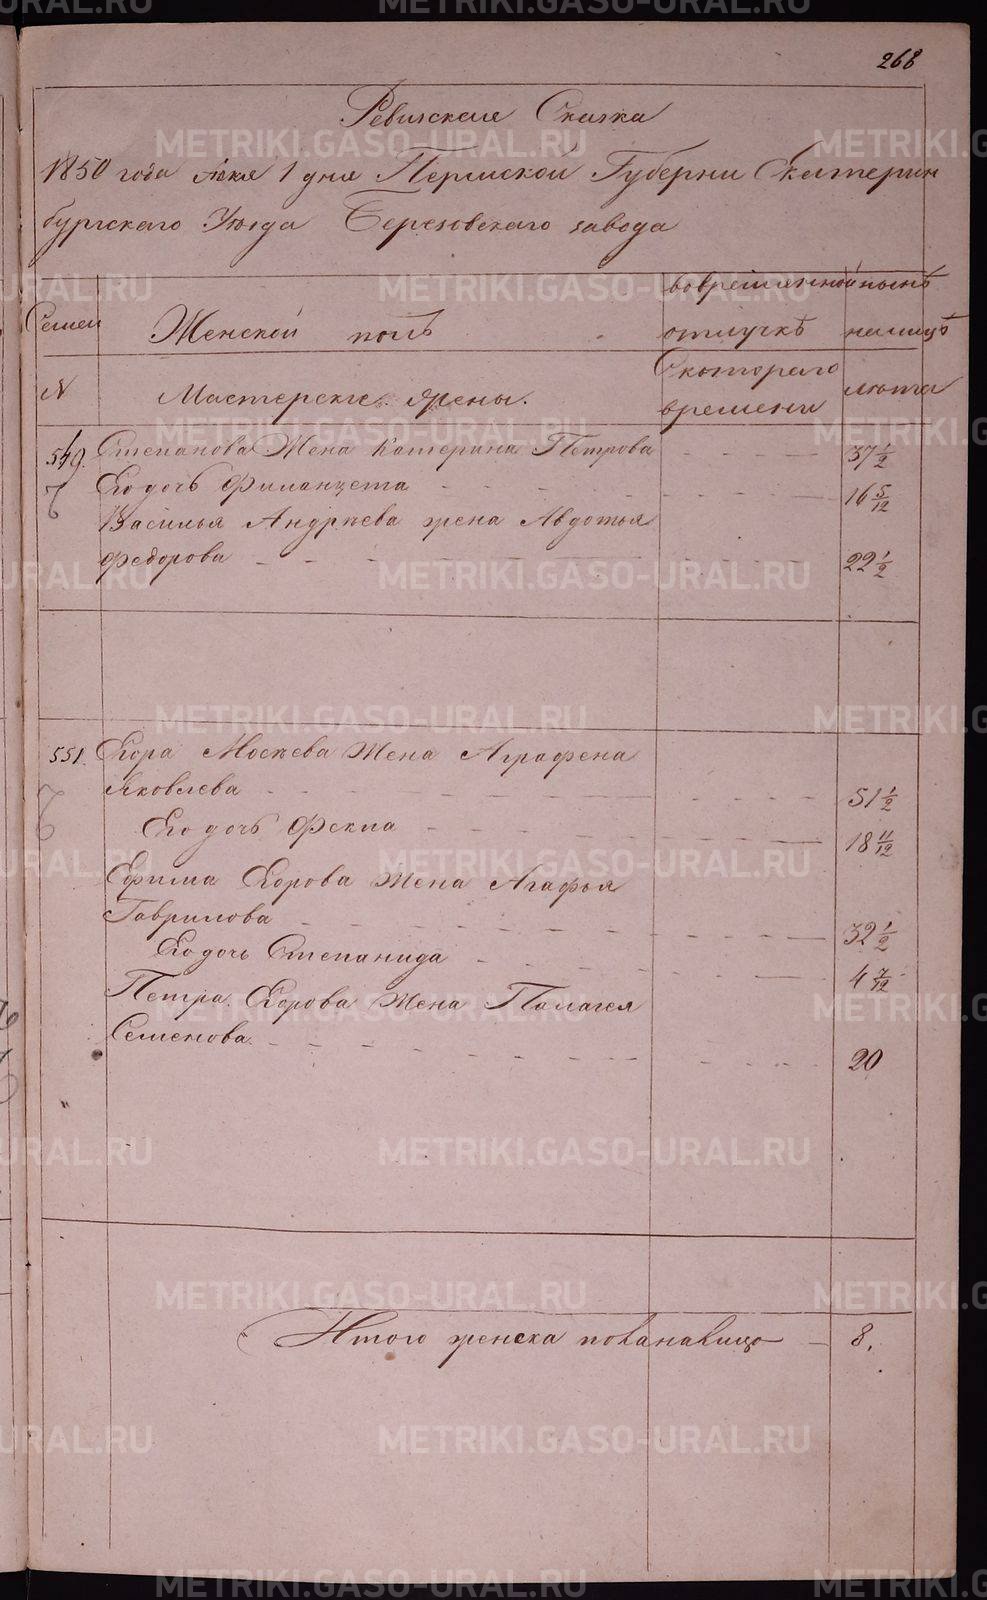 268
Ревизская Сказка
1850 года Июля 1 дня Пермской Губерни Екатерин
бургского Уезда Березовскаго завода
вовременной ныне
Семеи Женской полъ отлучкѣ налицо
Скотораго
N Мастерские жены. времени лѣта
549. Степанова Жена Катерина Петрова 37 1/2
Его дочь Филанцета 16 5/12
Василья Андрѣева жена Авдотья
Федорова 22 1/2
551. Егора Мосѣева Жена Аграфена
Яковлева 51 1/2
Его дочь Фекла 18 11/12
Ефима Егорова Жена Агафья
Гаврилова 32 1/2
Его дочь Степанида 4 7/12
Петра Егорова Жена Палагея
Семенова. 20
Итого женска пола налицо 8.
METRIKI.GASO-URAL.RU